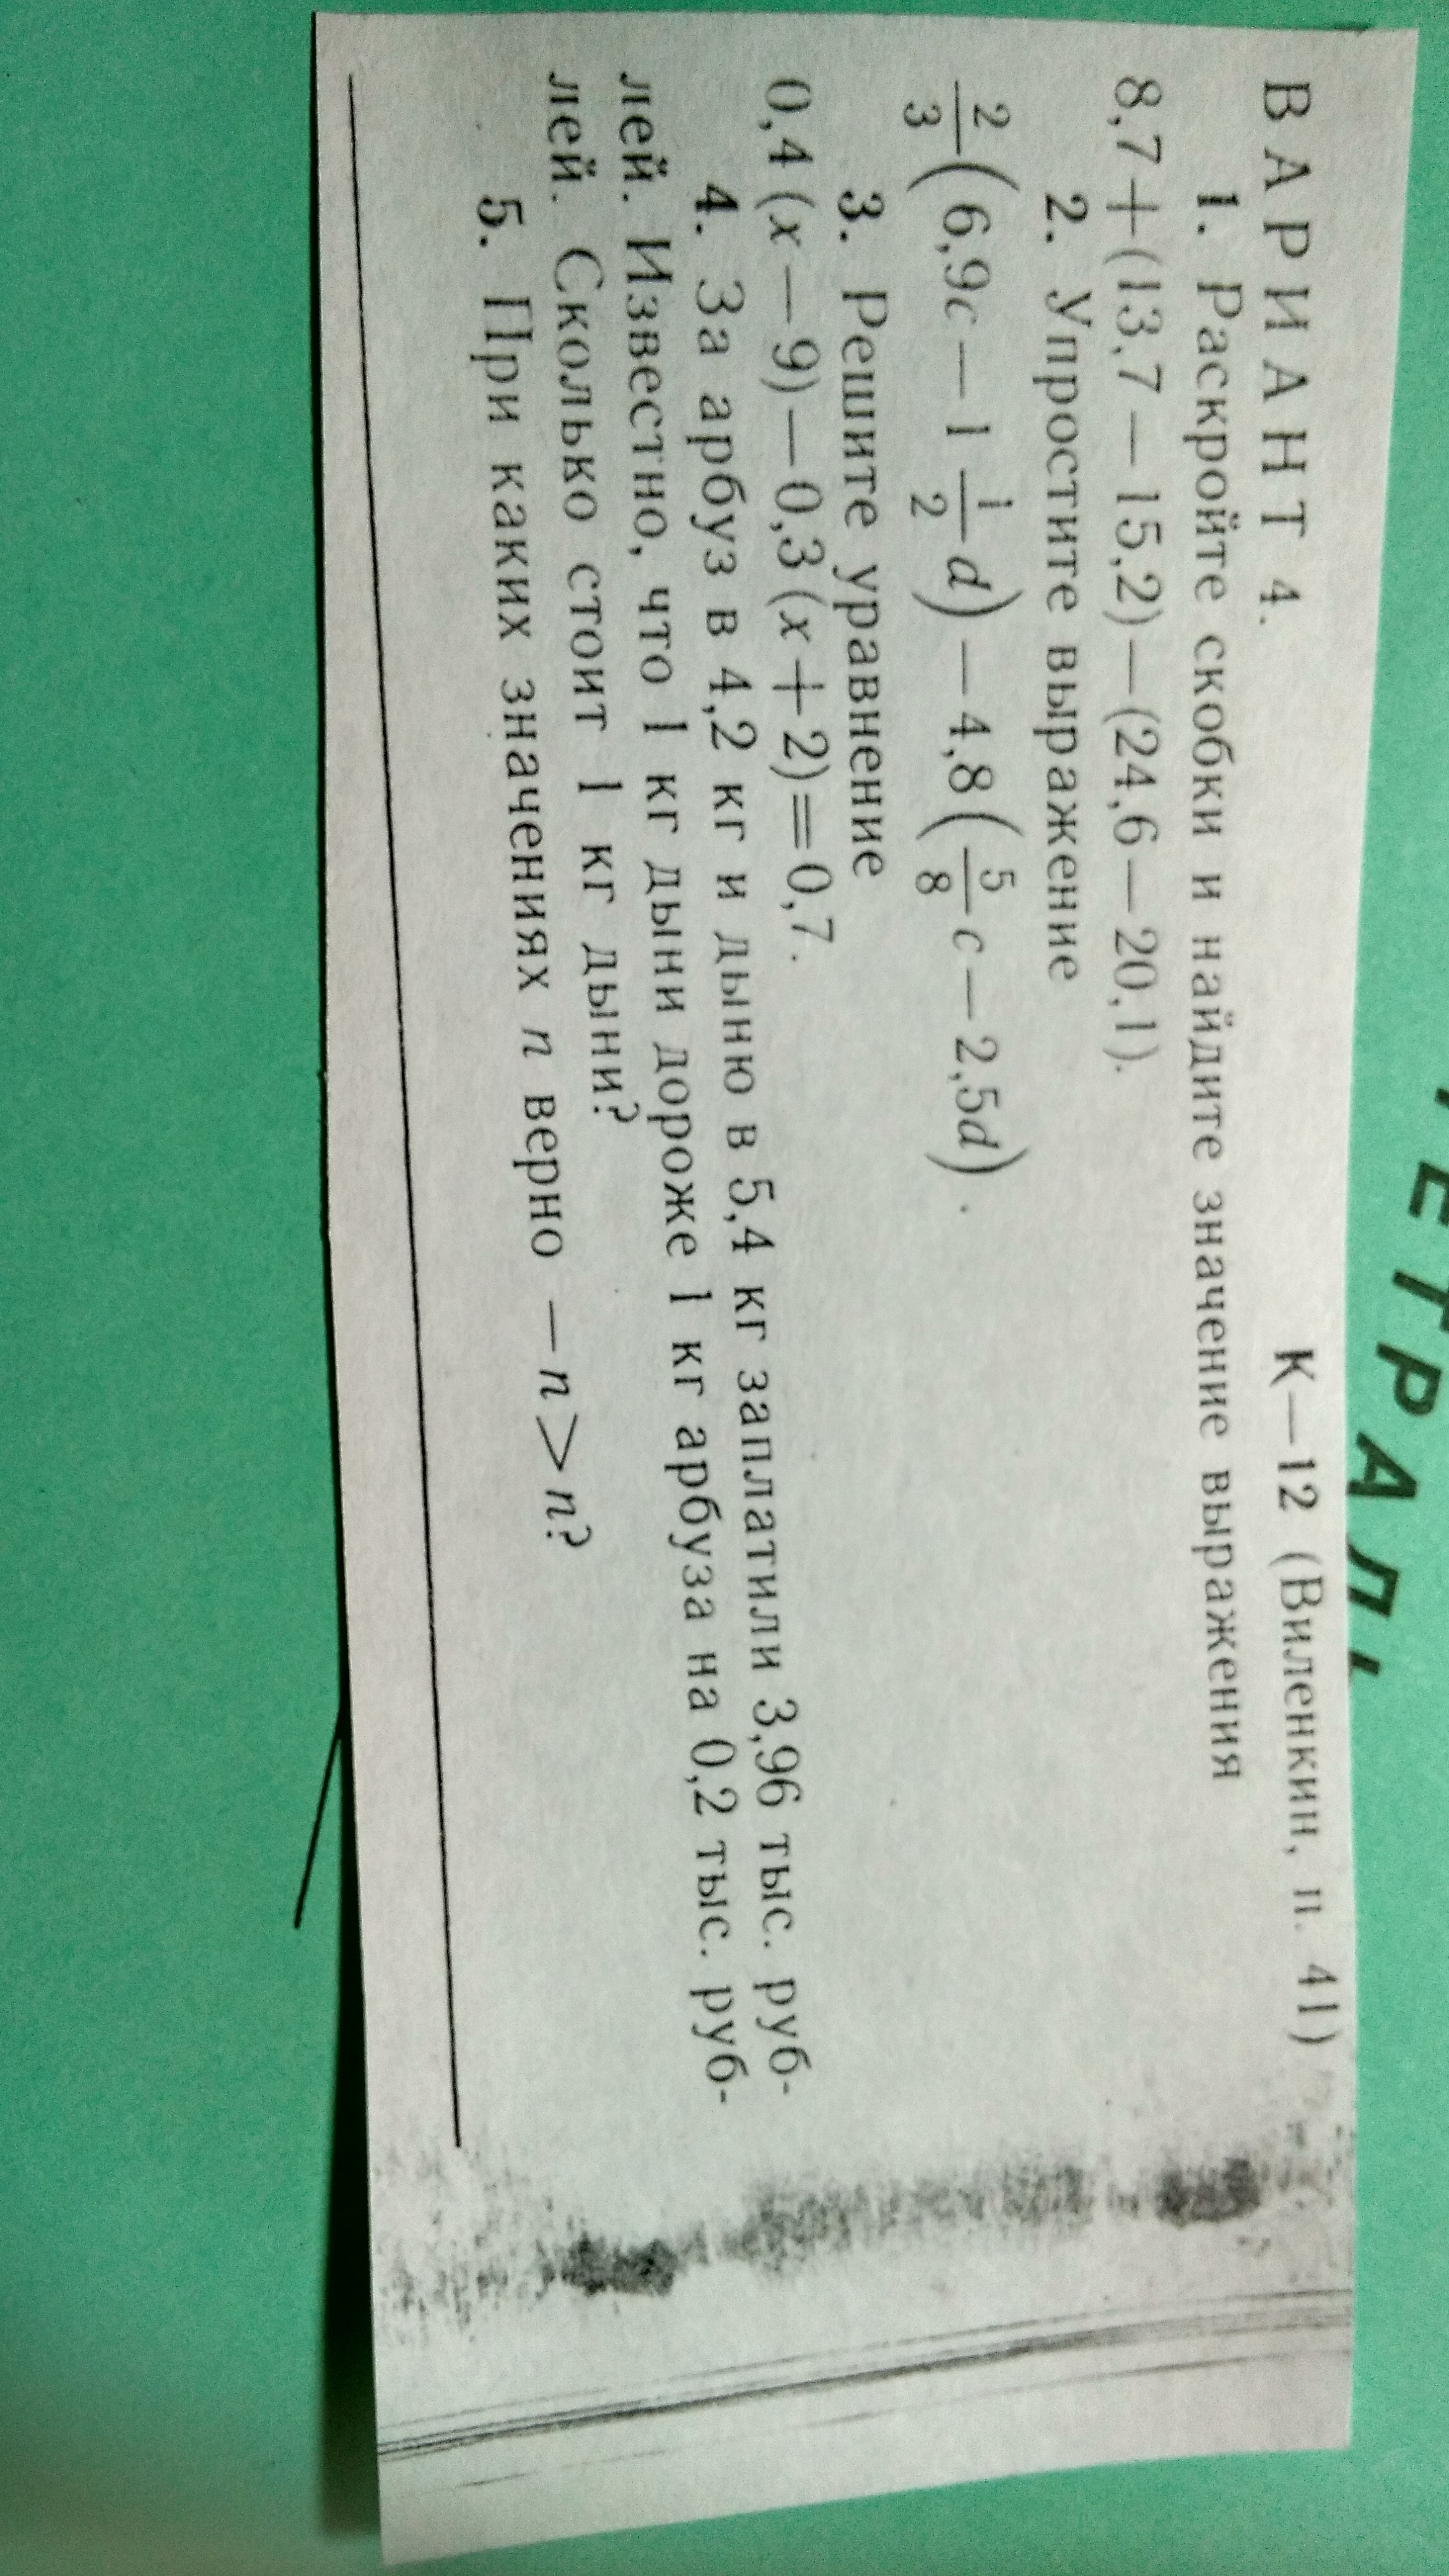 ВАРИАНТ 4. К—12 (Виленкин, п. 41)
1. Раскройте скобки и найдите значение выражения
8,7+(13,7—15,2)—(24,6—20,1).
2. Упростите выражение
2/3(6,9c—1 1/2 d)—4,8(5/8 c—2,5d).
3. Решите уравнение
0,4(x—9)—0,3(x+2)=0,7.
4. За арбуз в 4,2 кг и дыню в 5,4 кг заплатили 3,96 тыс. руб-
лей. Известно, что 1 кг дыни дороже 1 кг арбуза на 0,2 тыс. руб-
лей. Сколько стоит 1 кг дыни?
5. При каких значениях n верно —n>n?